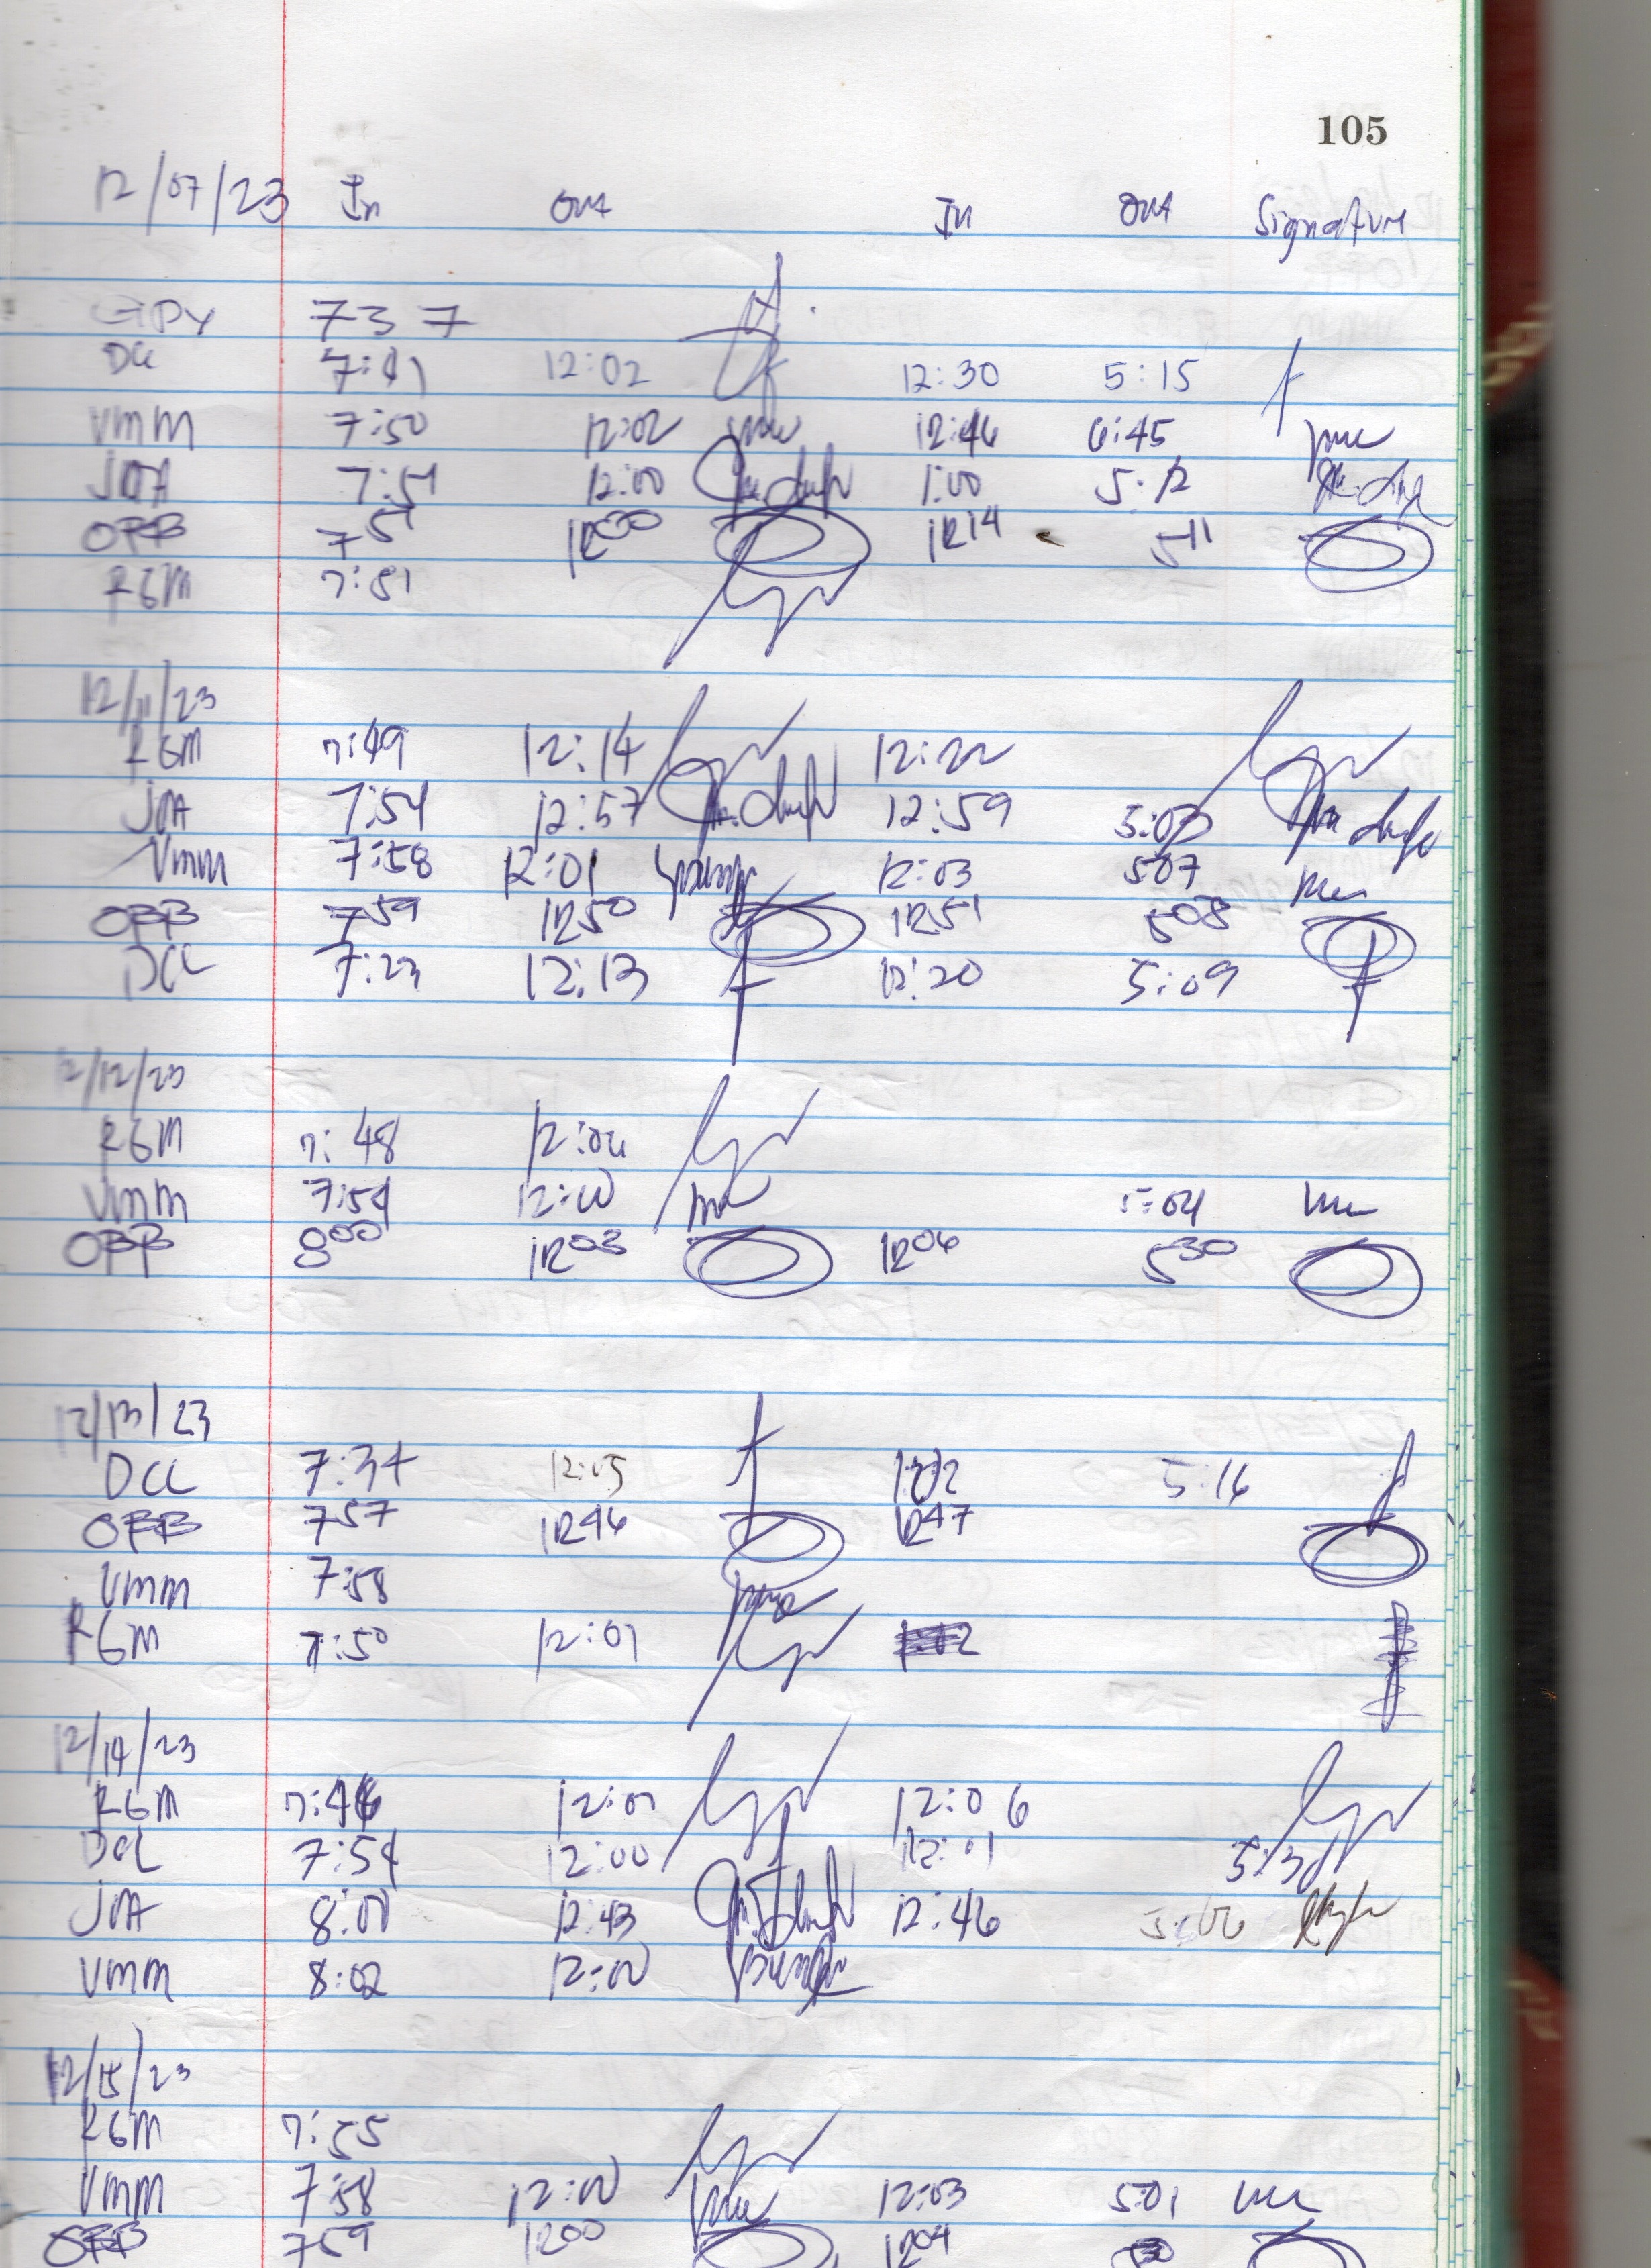 105
12/07/23 In Out In Out Signature
GDY 737
DCL 7:41 12:02 12:30 5:15
VMM 7:50 12:02 12:46 6:45
JOA 7:51 12:00 1:00 5:12
OBB 7 51 12 00 12 14 5 11
RGM 7:51
12/11/23
RGM 7:49 12:14 12:22
JOA 7:54 12:57 12:59 5:03
Vmm 7:58 12:01 12:03 507
OBB 7 59 12 50 12 51 5 08
DCL 7:23 12:13 12:20 5:09
12/12/23
RGM 7:48 12:04
Vmm 7:54 12:00 5:04
OBB 8 00 12 03 12 06 5 30
12/13/23
DCL 7:34 12:05 5:16
OBB 7 57 12 46 12 47
Vmm 7:58
RGM 7:50 12:01
12/14/23
RGM 12:01 12:06
DCL 7:54 12:00 12:01
JOA 8:00 12:43 12:46 5:00
VMM 8:02 12:00
12/15/23
RGM 7:55
VMM 7:58 12:00 12:03 5:01
OBB 7 59 12 00 12 04